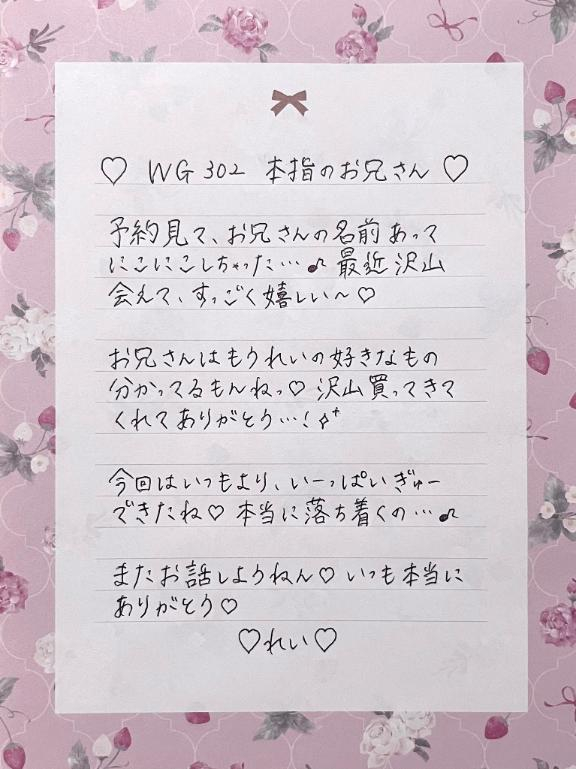 ♡ WG 302 本指のお兄さん ♡
予約見て、お兄さんの名前あって
にこにこしちゃった…♪ 最近沢山
会えて、すっごく嬉しい〜♡
お兄さんはもうれいの好きなもの
分かってるもんねっ♡ 沢山買ってきて
くれてありがとう…!✧⁺
今回はいつもより、いーっぱいぎゅー
できたね♡ 本当に落ち着くの…♪
またお話しようねん♡ いつも本当に
ありがとう♡
♡れい♡